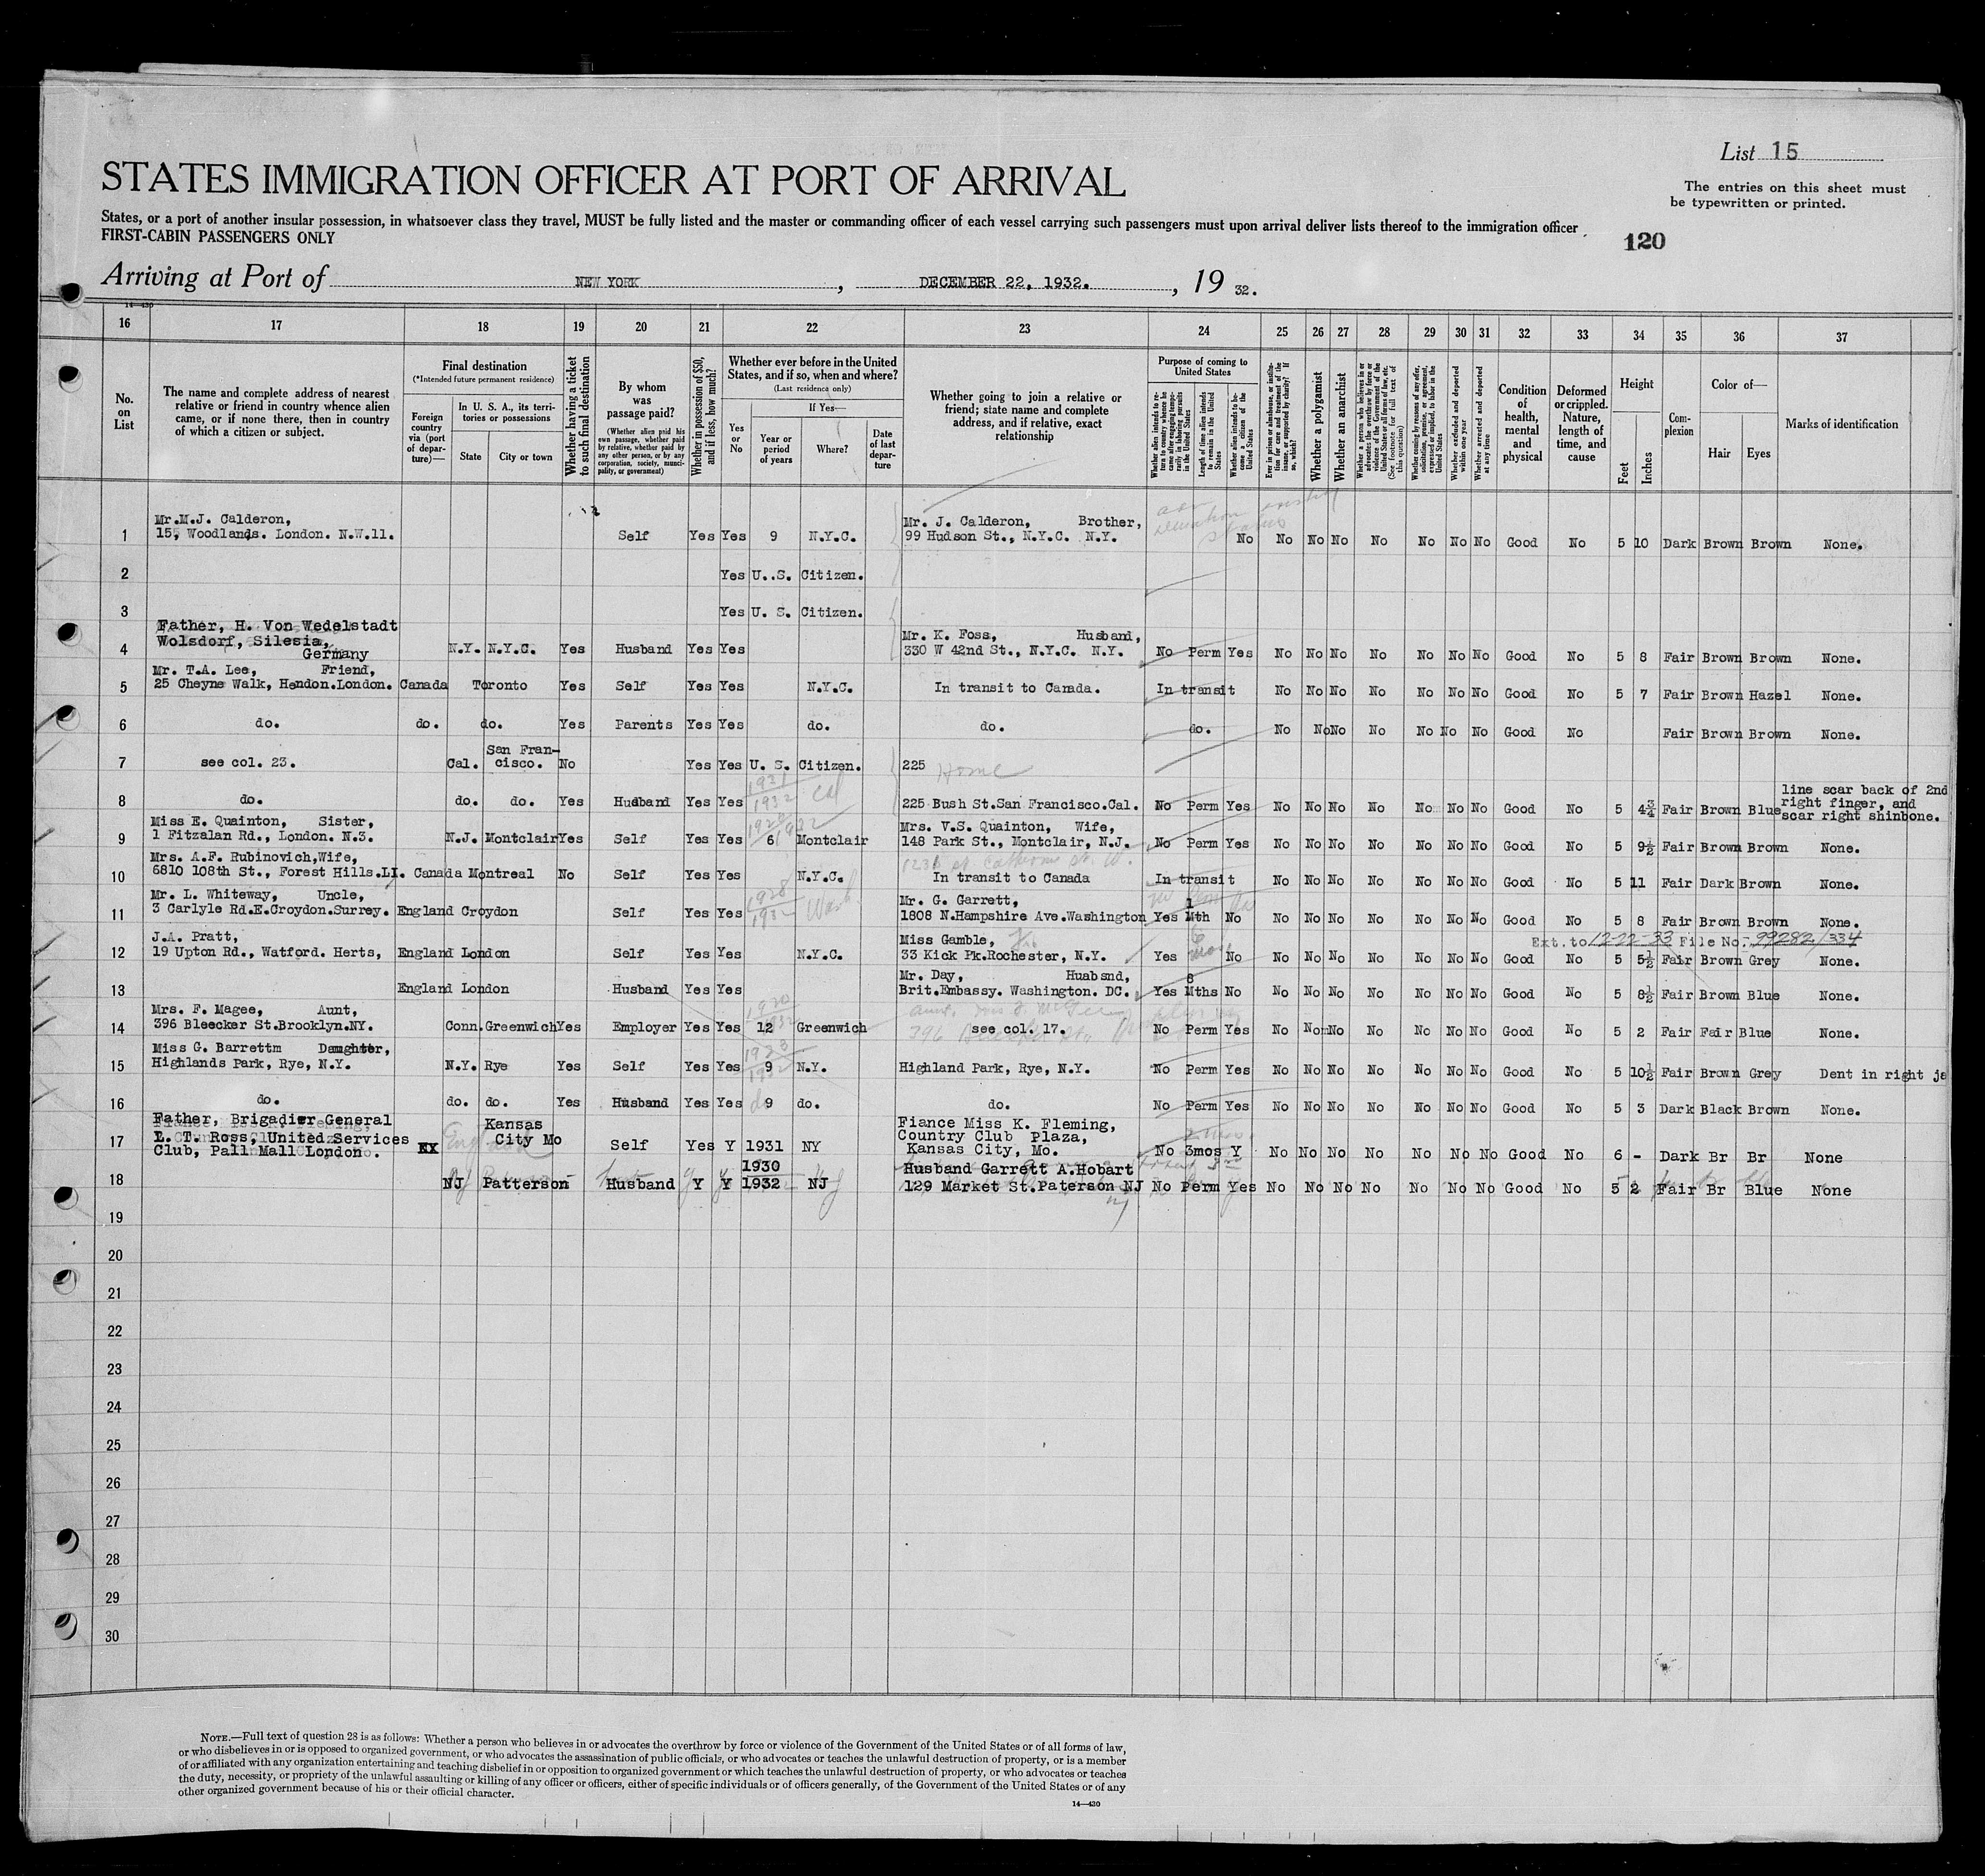 List 15
STATES IMMIGRATION OFFICER AT PORT OF ARRIVAL
The entries on this sheet must
be typewritten or printed.
States, or a port of another insular possession, in whatsoever class they travel, MUST be fully listed and the master or commanding officer of each vessel carrying such passengers must upon arrival deliver lists thereof to the immigration officer
FIRST-CABIN PASSENGERS ONLY
120
Arriving at Port of NEW YORK, DECEMBER 22, 1932., 19 32.
14—430
16 17 18 19 20 21 22 23 24 25 26 27 28 29 30 31 32 33 34 35 36 37
No. on List
The name and complete address of nearest
relative or friend in country whence alien
came, or if none there, then in country
of which a citizen or subject.
Final destination
(*Intended future permanent residence)
Foreign country via (port of departure)—
In U. S. A., its territories or possessions
State
City or town
Whether having a ticket to such final destination
By whom was passage paid?
(Whether alien paid his own passage, whether paid by relative, whether paid by any other person, or by any corporation, society, municipality, or government)
Whether in possession of $50, and if less, how much?
Whether ever before in the United States, and if so, when and where?
(Last residence only)
Yes or No
If Yes—
Year or period of years
Where?
Date of last departure
Whether going to join a relative or
friend; state name and complete
address, and if relative, exact
relationship
Purpose of coming to United States
Whether alien intends to return to country whence he came after engaging temporarily in laboring pursuits in the United States
Length of time alien intends to remain in the United States
Whether alien intends to become a citizen of the United States
Ever in prison or almshouse, or institution for care and treatment of the insane, or supported by charity? If so, which?
Whether a polygamist
Whether an anarchist
Whether a person who believes in or advocates the overthrow by force or violence of the Government of the United States or all forms of law, etc. (See footnote for full text of this question)
Whether coming by reasons of any offer, solicitation, promise, or agreement, expressed or implied, to labor in the United States
Whether excluded and deported within one year
Whether arrested and deported at any time
Condition of health, mental and physical
Deformed or crippled. Nature, length of time, and cause
Height
Feet
Inches
Complexion
Color of—
Hair
Eyes
Marks of identification
Mr.M.J. Calderon, Mr. J. Calderon, Brother,
1 15, Woodlands. London. N.W.11. Self Yes Yes 9 N.Y.C. 99 Hudson St., N.Y.C. N.Y. No No No No No No No No Good No 5 10 Dark Brown Brown None.
2 Yes U..S. Citizen.
3 Yes U. S. Citizen.
Father, H. Von Wedelstadt
Wolsdorf, Silesia, Mr. K. Foss, Husband,
4 Germany N.Y. N.Y.C. Yes Husband Yes Yes 330 W 42nd St., N.Y.C. N.Y. No Perm Yes No No No No No No No Good No 5 8 Fair Brown Brown None.
Mr. T.A. Lee, Friend,
5 25 Cheyne Walk, Hendon.London. Canada Toronto Yes Self Yes Yes N.Y.C. In transit to Canada. In transit No No No No No No No Good No 5 7 Fair Brown Hazel None.
6 do. do. do. Yes Parents Yes Yes do. do. do. No No No No No No No Good No Fair Brown Brown None.
San Fran-
7 see col. 23. Cal. cisco. No Yes Yes U. S. Citizen. 225 Home
1921
8 do. do. do. Yes Husband Yes Yes 1932 Cal 225 Bush St.San Francisco.Cal. No Perm Yes No No No No No No No Good No 5 4¾ Fair Brown Blue line scar back of 2nd
right finger, and
scar right shinbone.
Miss E. Quainton, Sister, Mrs. V.S. Quainton, Wife,
9 1 Fitzalan Rd., London. N.3. N.J. Montclair Yes Self Yes Yes 6 Montclair 148 Park St., Montclair, N.J. No Perm Yes No No No No No No No Good No 5 9½ Fair Brown Brown None.
Mrs. A.F. Rubinovich,Wife,
10 6810 108th St., Forest Hills.LI. Canada Montreal No Self Yes Yes N.Y.C. In transit to Canada In transit No No No No No No No Good No 5 11 Fair Dark Brown None.
Mr. L. Whiteway, Uncle, 1928 Mr. G. Garrett, 1
11 3 Carlyle Rd.E.Croydon.Surrey. England Croydon Self Yes Yes 1932 Wash 1808 N.Hampshire Ave.Washington Yes Mth No No No No No No No No Good No 5 8 Fair Brown Brown None.
J.A. Pratt, Miss Gamble, 6 Ext. to 12-22-33 File No. 99282/334
12 19 Upton Rd., Watford. Herts, England London Self Yes Yes N.Y.C. 33 Kick Pk.Rochester, N.Y. Yes mos No No No No No No No No Good No 5 5½ Fair Brown Grey None.
Mr. Day, Huabsnd, 6
13 England London Husband Yes Yes Brit.Embassy. Washington. DC. Yes Mths No No No No No No No No Good No 5 8½ Fair Brown Blue None.
Mrs. F. Magee, Aunt,
14 396 Bleecker St.Brooklyn.NY. Conn. Greenwich Yes Employer Yes Yes 12 Greenwich see col. 17. No Perm Yes No No No No No No No Good No 5 2 Fair Fair Blue None.
Miss G. Barrettm Daughter, 1923
15 Highlands Park, Rye, N.Y. N.Y. Rye Yes Self Yes Yes 9 N.Y. Highland Park, Rye, N.Y. No Perm Yes No No No No No No No Good No 5 10½ Fair Brown Grey Dent in right ja
16 do. do. do. Yes Husband Yes Yes 9 do. do. No Perm Yes No No No No No No No Good No 5 3 Dark Black Brown None.
Father, Brigadier General Kansas Fiance Miss K. Fleming,
L. T. Ross, United Services City Mo Country Club Plaza,
17 Club, Pall Mall London. XX Self Yes Y 1931 NY Kansas City, Mo. No 3mos Y No No No No No No No Good No 6 - Dark Br Br None
1930 Husband Garrett A.Hobart
18 NJ Patterson Husband Y Y 1932 NJ 129 Market St.Paterson NJ No Perm Yes No No No No No No No Good No 5 2 Fair Br Blue None
19
20
21
22
23
24
25
26
27
28
29
30
NOTE.—Full text of question 28 is as follows: Whether a person who believes in or advocates the overthrow by force or violence of the Government of the United States or of all forms of law,
or who disbelieves in or is opposed to organized government, or who advocates the assassination of public officials, or who advocates or teaches the unlawful destruction of property, or is a member
of or affiliated with any organization entertaining and teaching disbelief in or opposition to organized government or which teaches the unlawful destruction of property, or who advocates or teaches
the duty, necessity, or propriety of the unlawful assaulting or killing of any officer or officers, either of specific individuals or of officers generally, of the Government of the United States or of any
other organized government because of his or their official character.
14—430